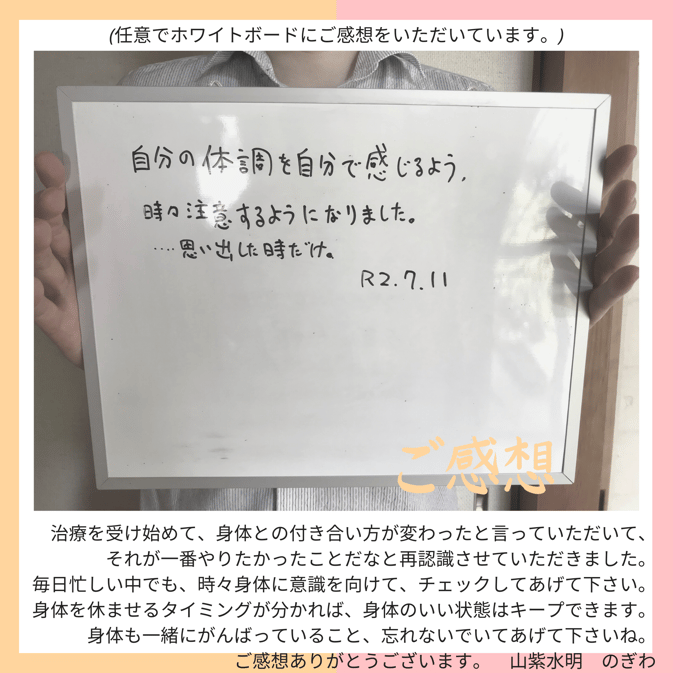 (任意でホワイトボードにご感想をいただいています。)
自分の体調を自分で感じるよう、
時々注意するようになりました。
‥‥思い出した時だけ。
R2.7.11
ご感想
治療を受け始めて、身体との付き合い方が変わったと言っていただいて、
それが一番やりたかったことだなと再認識させていただきました。
毎日忙しい中でも、時々身体に意識を向けて、チェックしてあげて下さい。
身体を休ませるタイミングが分かれば、身体のいい状態はキープできます。
身体も一緒にがんばっていること、忘れないでいてあげて下さいね。
ご感想ありがとうございます。　山紫水明　のぎわ